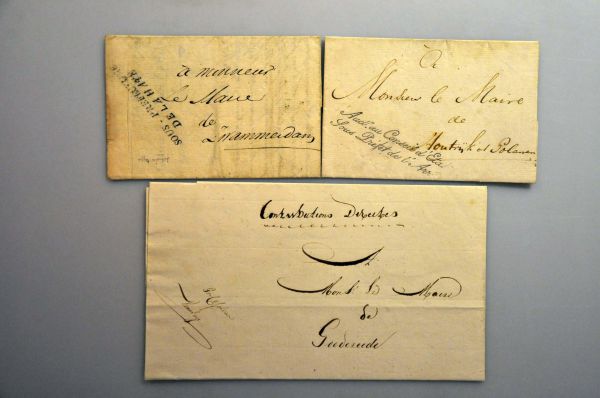 SOUS-PREFECTURE
DE LA HAYE
à monsieur
Le Maire
de
A
Monsieur le Maire
de
Houtrijk et Polanen
Audit. au Conseil d'Etat
Sous Préfet de l'Arr.
Contributions Directes
A
Mons. le Maire
de
Goedereede